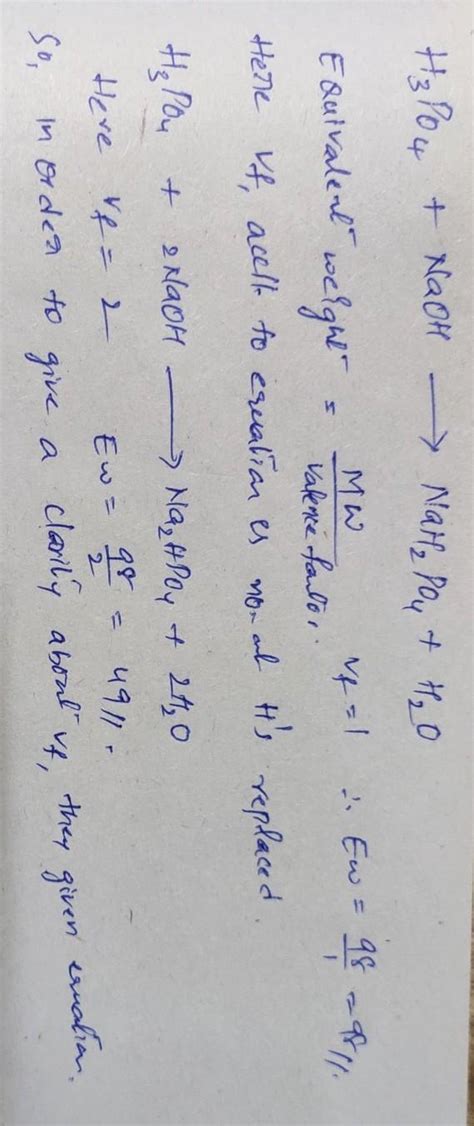 H3PO4 + NaOH ⟶ NaH2PO4 + H2O
Equivalent weight = MW / Valence factor. Vf = 1 ∴ EW = 98/1 = 98//.
Here Vf, acc to equation is no. of H's replaced
H3PO4 + 2NaOH ⟶ Na2HPO4 + 2H2O
Here Vf = 2 EW = 98/2 = 49//.
So, in order to give a clarity about Vf, they given equation.